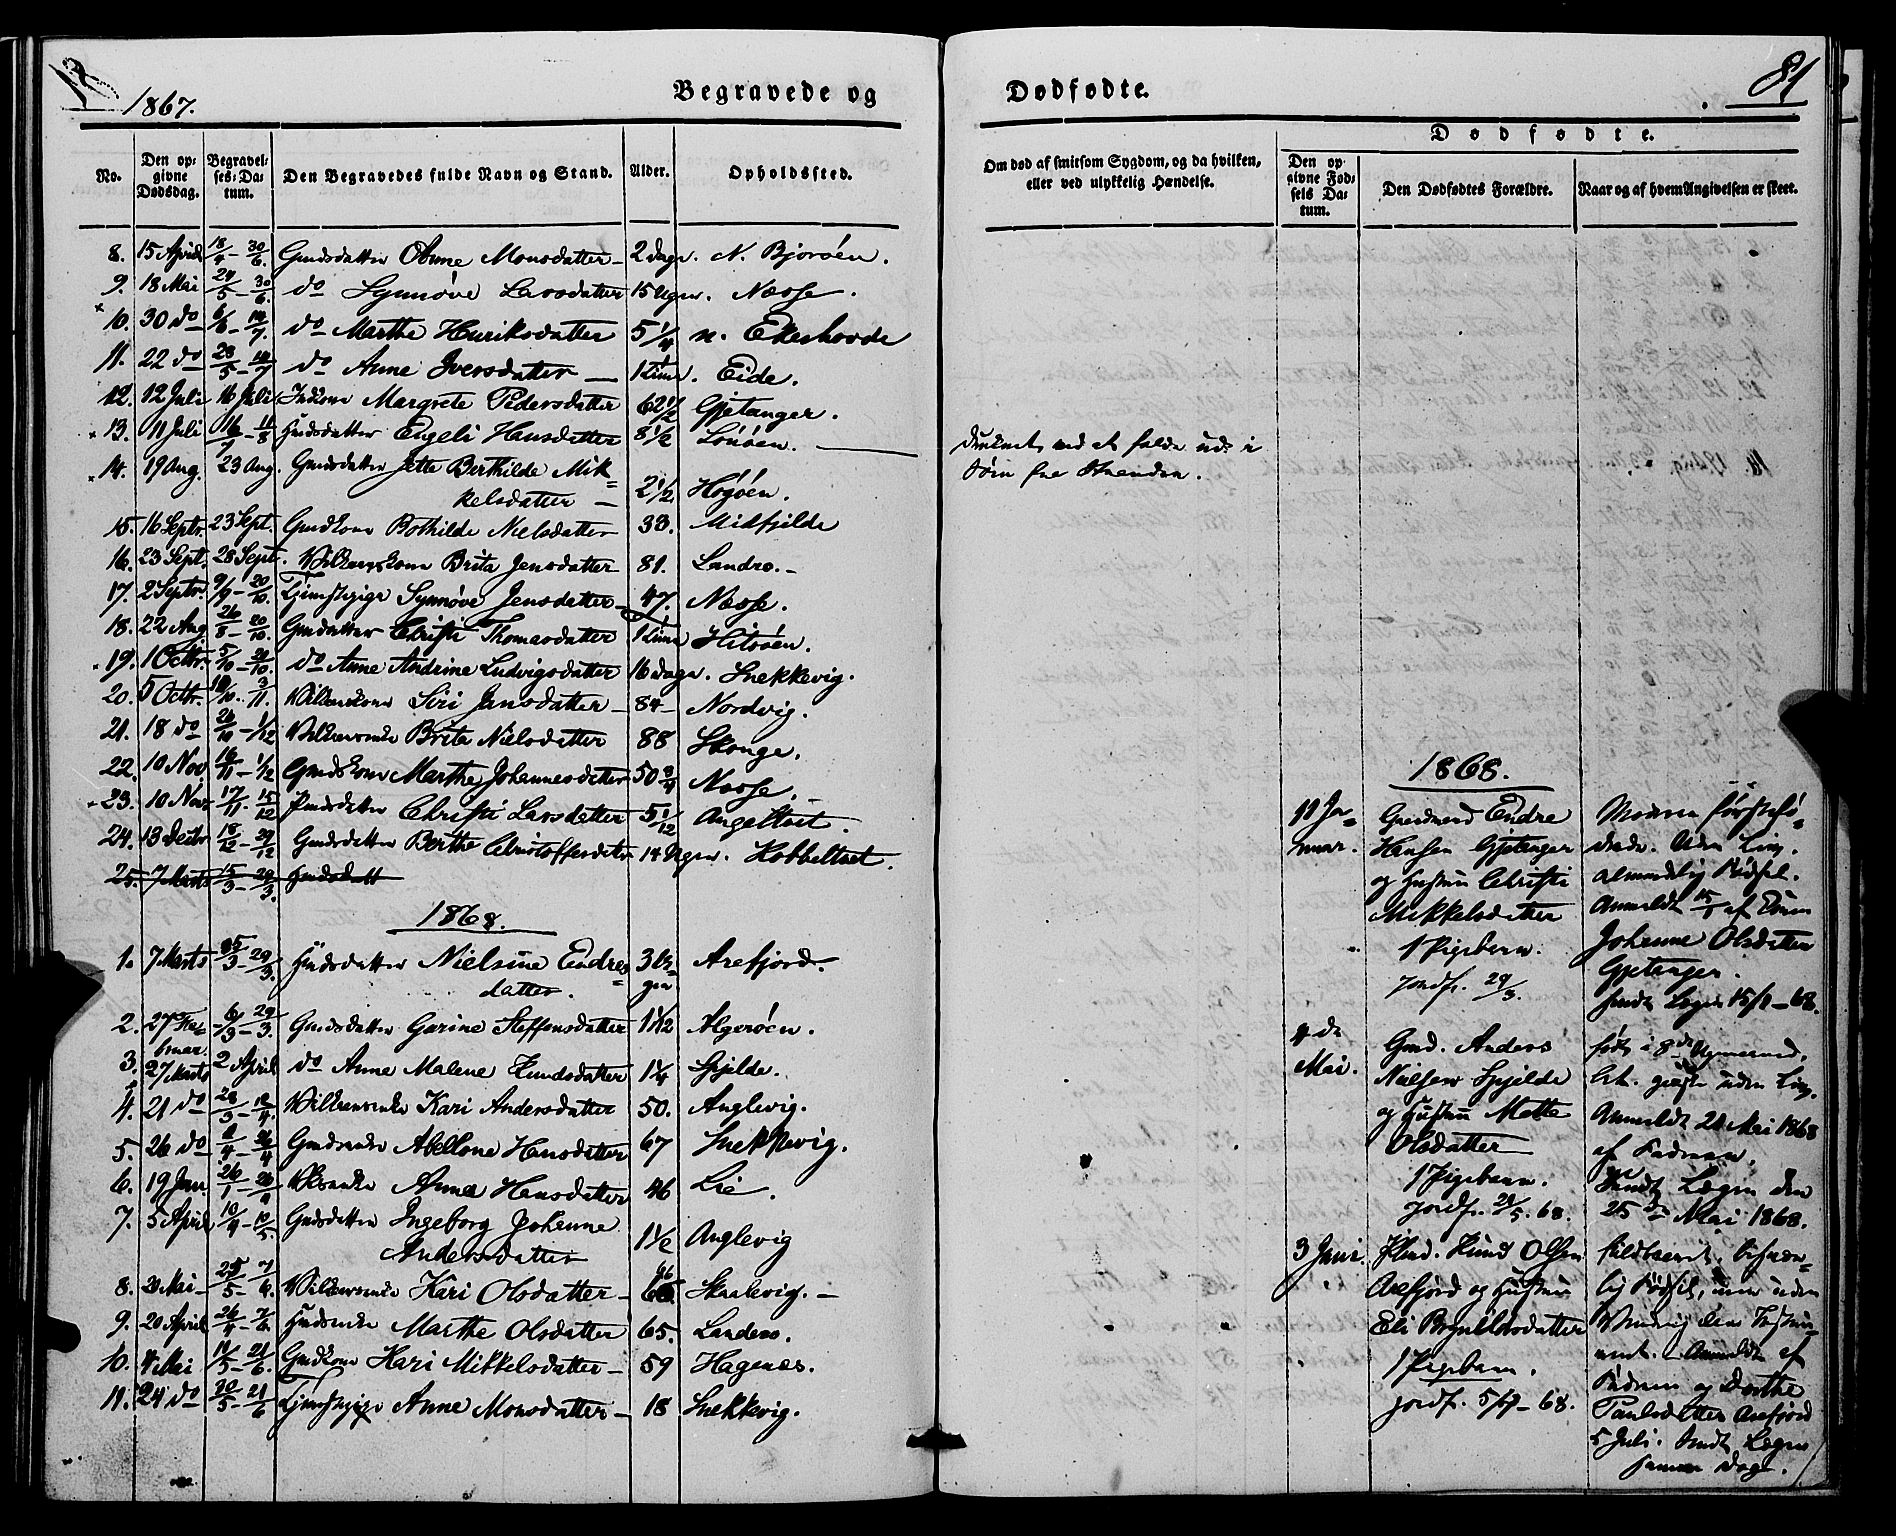 1867.
Begravede og
No. Den opgivne Dødsdag. Begravelses-Datum. Den Begravedes fulde Navn og Stand. Alder. Opholdssted.
8. 15 April 18/4 - 30/6. Gmdsdatter Anne Monsdatter 2 Dage. N. Bjorøen.
9. 18 Mai 24/5 - 30/6. do Synnøve Larsdatter 15 Uger. Næsse.
10. 30 do 6/6 - 14/7. do Marthe Henriksdatter 5 1/4 n. Ekerhovde
11. 22 do 28/5 - 14/7 do Anne Iversdatter 1 Time. Eide.
12. 12 Juli 16 Juli Margrete Pedersdatter 62 1/2 Gjetanger.
13. 11 Juli 16/7 - 11/8 Husdsdatter Engeli Hansdatter 8 1/2 Lonøen.
14. 19 Aug. 23 Aug. Gmdsdatter Jette Berthilde Mik-
kelsdatter 2 1/2 Høgøen.
15. 16 Septr. 23 Sept. Gmdkone Bothilde Nielsdatter 33. Midfjelde
16. 23 Sept. 28 Sept. Brita Jensdatter 81. Landro.
17. 2 Septr. 9/9 - 20/10. Synnøve Jensdatter 47. Næsse.
18. 22 Aug. 26/8 - 20/10. Gmdsdatter Christi Thomasdatter 1 Time Hitsøen.
19. 1 Octbr. 5/10 - 20/10. do Anne Andrine Ludvigsdatter 16 Dage. Snekkevig.
20. 5 Octbr. 3/11. Siri Jansdatter 84 Nordvig.
21. 18 do 26/10 - 1/12 Brita Nielsdatter 88 Skoge.
22. 10 Nov. 16/11 - 1/12 Gmdskone Marthe Johannesdatter 50 3/4 Næsse.
23. 10 Nov. 17/11 - 15/12 Christi Larsdatter 5 1/12 Angeltvet.
24. 13 Decbr 18/12 - 29/12 Gmdsdatter Berthe Christoffersdatter 14 Uger. Kobbeltvet.
25. 7 Marts 15/3 - 29/3. Husdsdatt
1868.
1. 7 Marts 15/3 - 29/3. Husdsdatter Nielsine Endres-
datter. 3 Uger Arefjord.
2. 27 Februar. 6/3 - 29/3. Gmdsdatter Garine Steffensdatter 1 1/12 Algerøen.
3. 27 Marts 2 April do Anne Malene Knudsdatter 1 1/4 Spjelde.
4. 21 do Kari Andersdatter 50. Anglevig.
5. 26 do Abellone Hansdatter 67 Snekkevig.
6. 19 Jan. 26/1 Anna Hansdatter 46 Lie.
7. 5 April 10/4 - 10/5. Gmdsdatter Ingeborg Johanne
Andersdatter 1 1/2 Anglevig
8. 20 Mai 25/5 - 7/6. Kari Olsdatter Skaalevig.
9. 20 April 26/4 - 7/6. Marthe Olsdatter 65. Landro.
10. 4 Mai 11/5 - 21/6. Gmdkone Kari Mikkelsdatter 59 Hagenes.
11. 24 do 30/5 - 21/6 Anne Monsdatter 18 Snekkevig.
Dødfødte.
81
Dødfødte.
Om død af smitsom Sygdom, og da hvilken, eller ved ulykkelig Hændelse. Den opgivne Fødsels Datum. Den Dødfødtes Forældre. Naar og af hvem Angivelsen er skeet.
druknet ved at falde ud i
Søen fra Stranden.
1868.
11 Januar.
Gaardmand Endre
Hansen Gjetanger
og Hustru Christi
Mikkelsdatter
1 Pigebarn.
Jordf. 29/3.
Moderen førstefø-
dende. Uden Liv.
almindelig Fødsel.
Anmeldt 15/1 af Konen
Johanne Olsdatter
Gjetanger.
Lægen 15/1 - 68.
4de Mai.
Gmd. Anders
Nielsen Spjelde
og Hustru Mette
Olsdatter
1 Pigebarn.
Jordf. 68.
født i 8de
uden Liv.
Anmeldt 21 Mai 1868
af Faderen.
Lægen den
25de Mai 1868.
3 Juni.
Knud Olsen
Arefjord og Hustru
Eli Brynildsdatter
1 Pigebarn.
Jordf. 5/7 - 68.
Fødsel, men uden
Anmeldt af
Faderen og Dorthe
Paulsdatter Arefjord
5 Juli. Lægen
samme Dag.